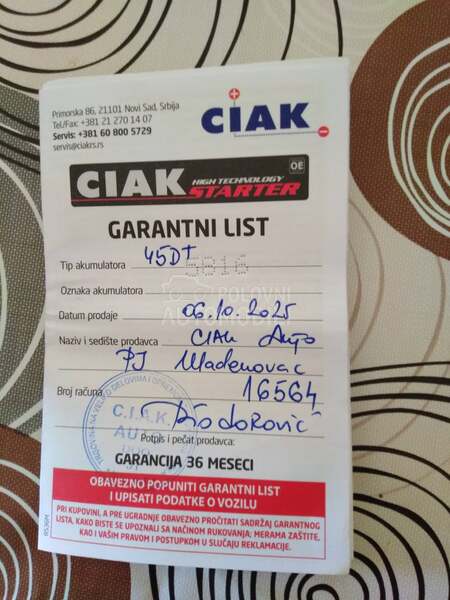 Primorska 86, 21101 Novi Sad, Srbija
Tel/Fax: +381 21 270 14 07
Servis: +381 60 800 5729
servis@ciakrs.rs
CIAK
CIAK HIGH TECHNOLOGY STARTER OE
GARANTNI LIST
Tip akumulatora 45D+ 5816
Oznaka akumulatora
POLOVNI AUTOMOBILI
Datum prodaje 06.10.2025
Naziv i sedište prodavca CIAK Auto
PJ Mladenovac
Broj računa 16564
C.I.A.K.
AUTO
Potpis i pečat prodavca:
GARANCIJA 36 MESECI
OBAVEZNO POPUNITI GARANTNI LIST
I UPISATI PODATKE O VOZILU
PRI KUPOVINI, A PRE UGRADNJE OBAVEZNO PROČITATI SADRŽAJ GARANTNOG
LISTA, KAKO BISTE SE UPOZNALI SA NAČINOM RUKOVANJA; MERAMA ZAŠTITE,
KAO I VAŠIM PRAVOM I POSTUPKOM U SLUČAJU REKLAMACIJE.